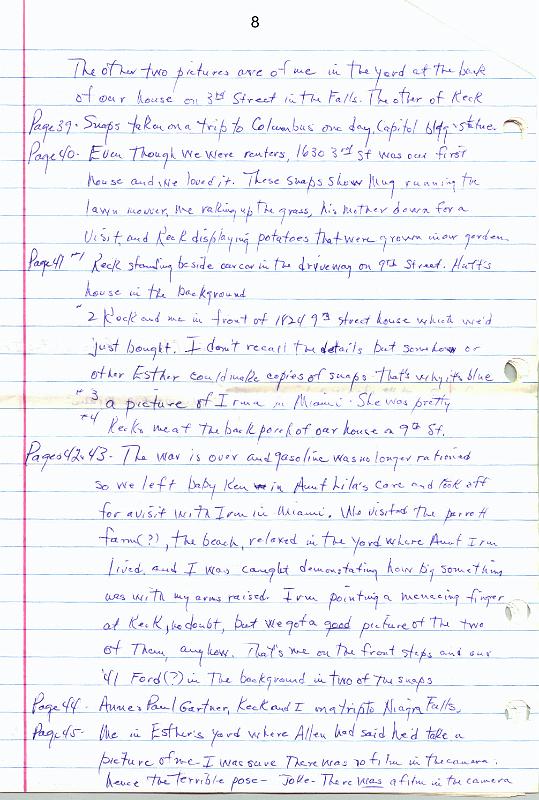 8
The other two pictures are of me in the yard at the back
of our house on 3rd Street in the Falls. The other of Keck
Page 39. Snaps taken on a trip to Columbus one day, Capitol bldg & statue.
Page 40. Even Though we were renters, 1630 3rd St was our first
house and we loved it. These snaps show Mug running the
lawn mower, me raking up the grass, his mother down for a
visit, and Keck displaying potatoes that were grown in our garden.
Page 41 #1 Keck standing beside our car in the driveway on 9th Street. Hutt's
house in the background
"2 Keck and me in front of 1824 9th street house which we'd
just bought. I don't recall the details but somehow or
other Esther could make copies of snaps that's why it's blue
"3 a picture of Irma in Miami. She was pretty
#4 Keck & me at the back porch of our house on 9th St.
Pages 42 & 43 - The war is over and gasoline was no longer rationed
so we left baby Ken in Aunt Lila's care and took off
for a visit with Irm in Miami. We visited the parrott
farm(?), the beach, relaxed in the yard where Aunt Irm
lived, and I was caught demonstating how big something
was with my arms raised. Irm pointing a menacing finger
at Keck, no doubt, but we got a good picture of the two
of Them, anyhow. That's me on the front steps and our
'41 Ford(?) in The background in two of the snaps
Page 44 - Anne & Paul Gartner, Keck and I on a trip to Niagra Falls.
Page 45 - Me in Esther's yard where Allen had said he'd take a
picture of me - I was sure There was no film in the camera.
hence the terrible pose - Joke - There was a film in the camera